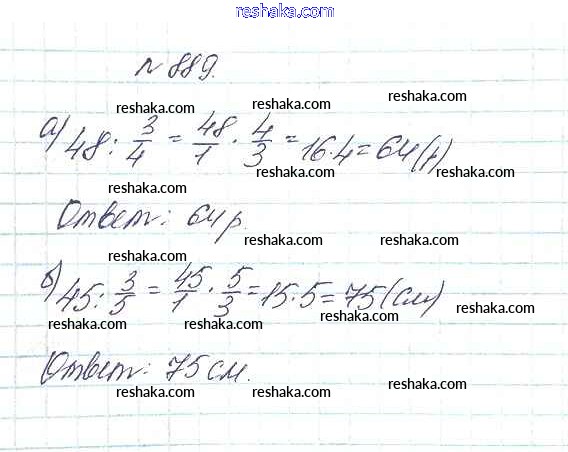 reshaka.com
№ 889.
reshaka.com reshaka.com reshaka.com
а) 48 : 3/4 = 48/1 · 4/3 = 16·4 = 64 (р)
reshaka.com reshaka.com reshaka.com
reshaka.com reshaka.com reshaka.com
Ответ: 64 р.
reshaka.com reshaka.com reshaka.com
б) 45 : 3/5 = 45/1 · 5/3 = 15·5 = 75 (см)
reshaka.com reshaka.com reshaka.com
reshaka.com reshaka.com reshaka.com
Ответ: 75 см.
reshaka.com reshaka.com reshaka.com
reshaka.com